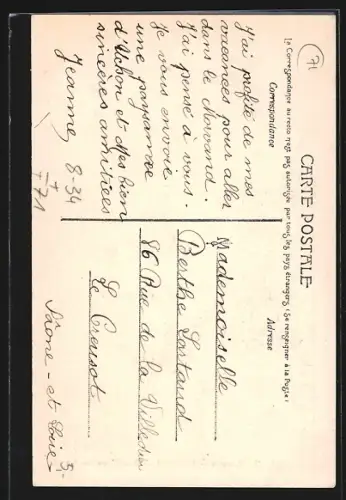 CARTE POSTALE
La Correspondance au recto n'est pas autorisée par tous les pays étrangers (Se renseigner à la Poste)
Correspondance
Adresse
71
J'ai profité de mes
vacances pour aller
dans le Morvand.
J'ai pensé à vous.
Je vous envoie
une paysanne
d'Uchon et mes bien
sincères amitiées
Jeanne
8-34
T 71
Mademoiselle
Berthe
86 Rue de la Villedieu
Le Creusot
Saône-et-Loire